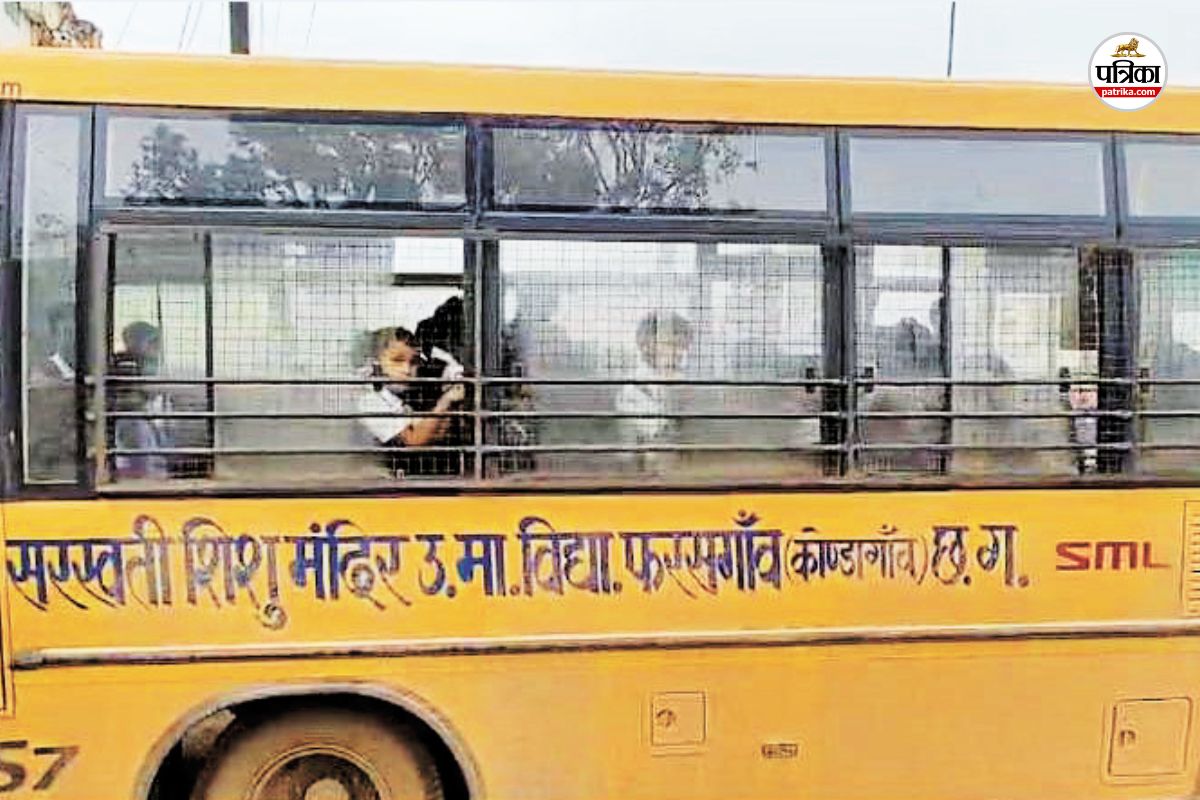 पत्रिका
patrika.com
m
सरस्वती शिशु मंदिर उ.मा.विद्या. फरसगाँव (कोण्डागाँव) छ.ग.
SML
57